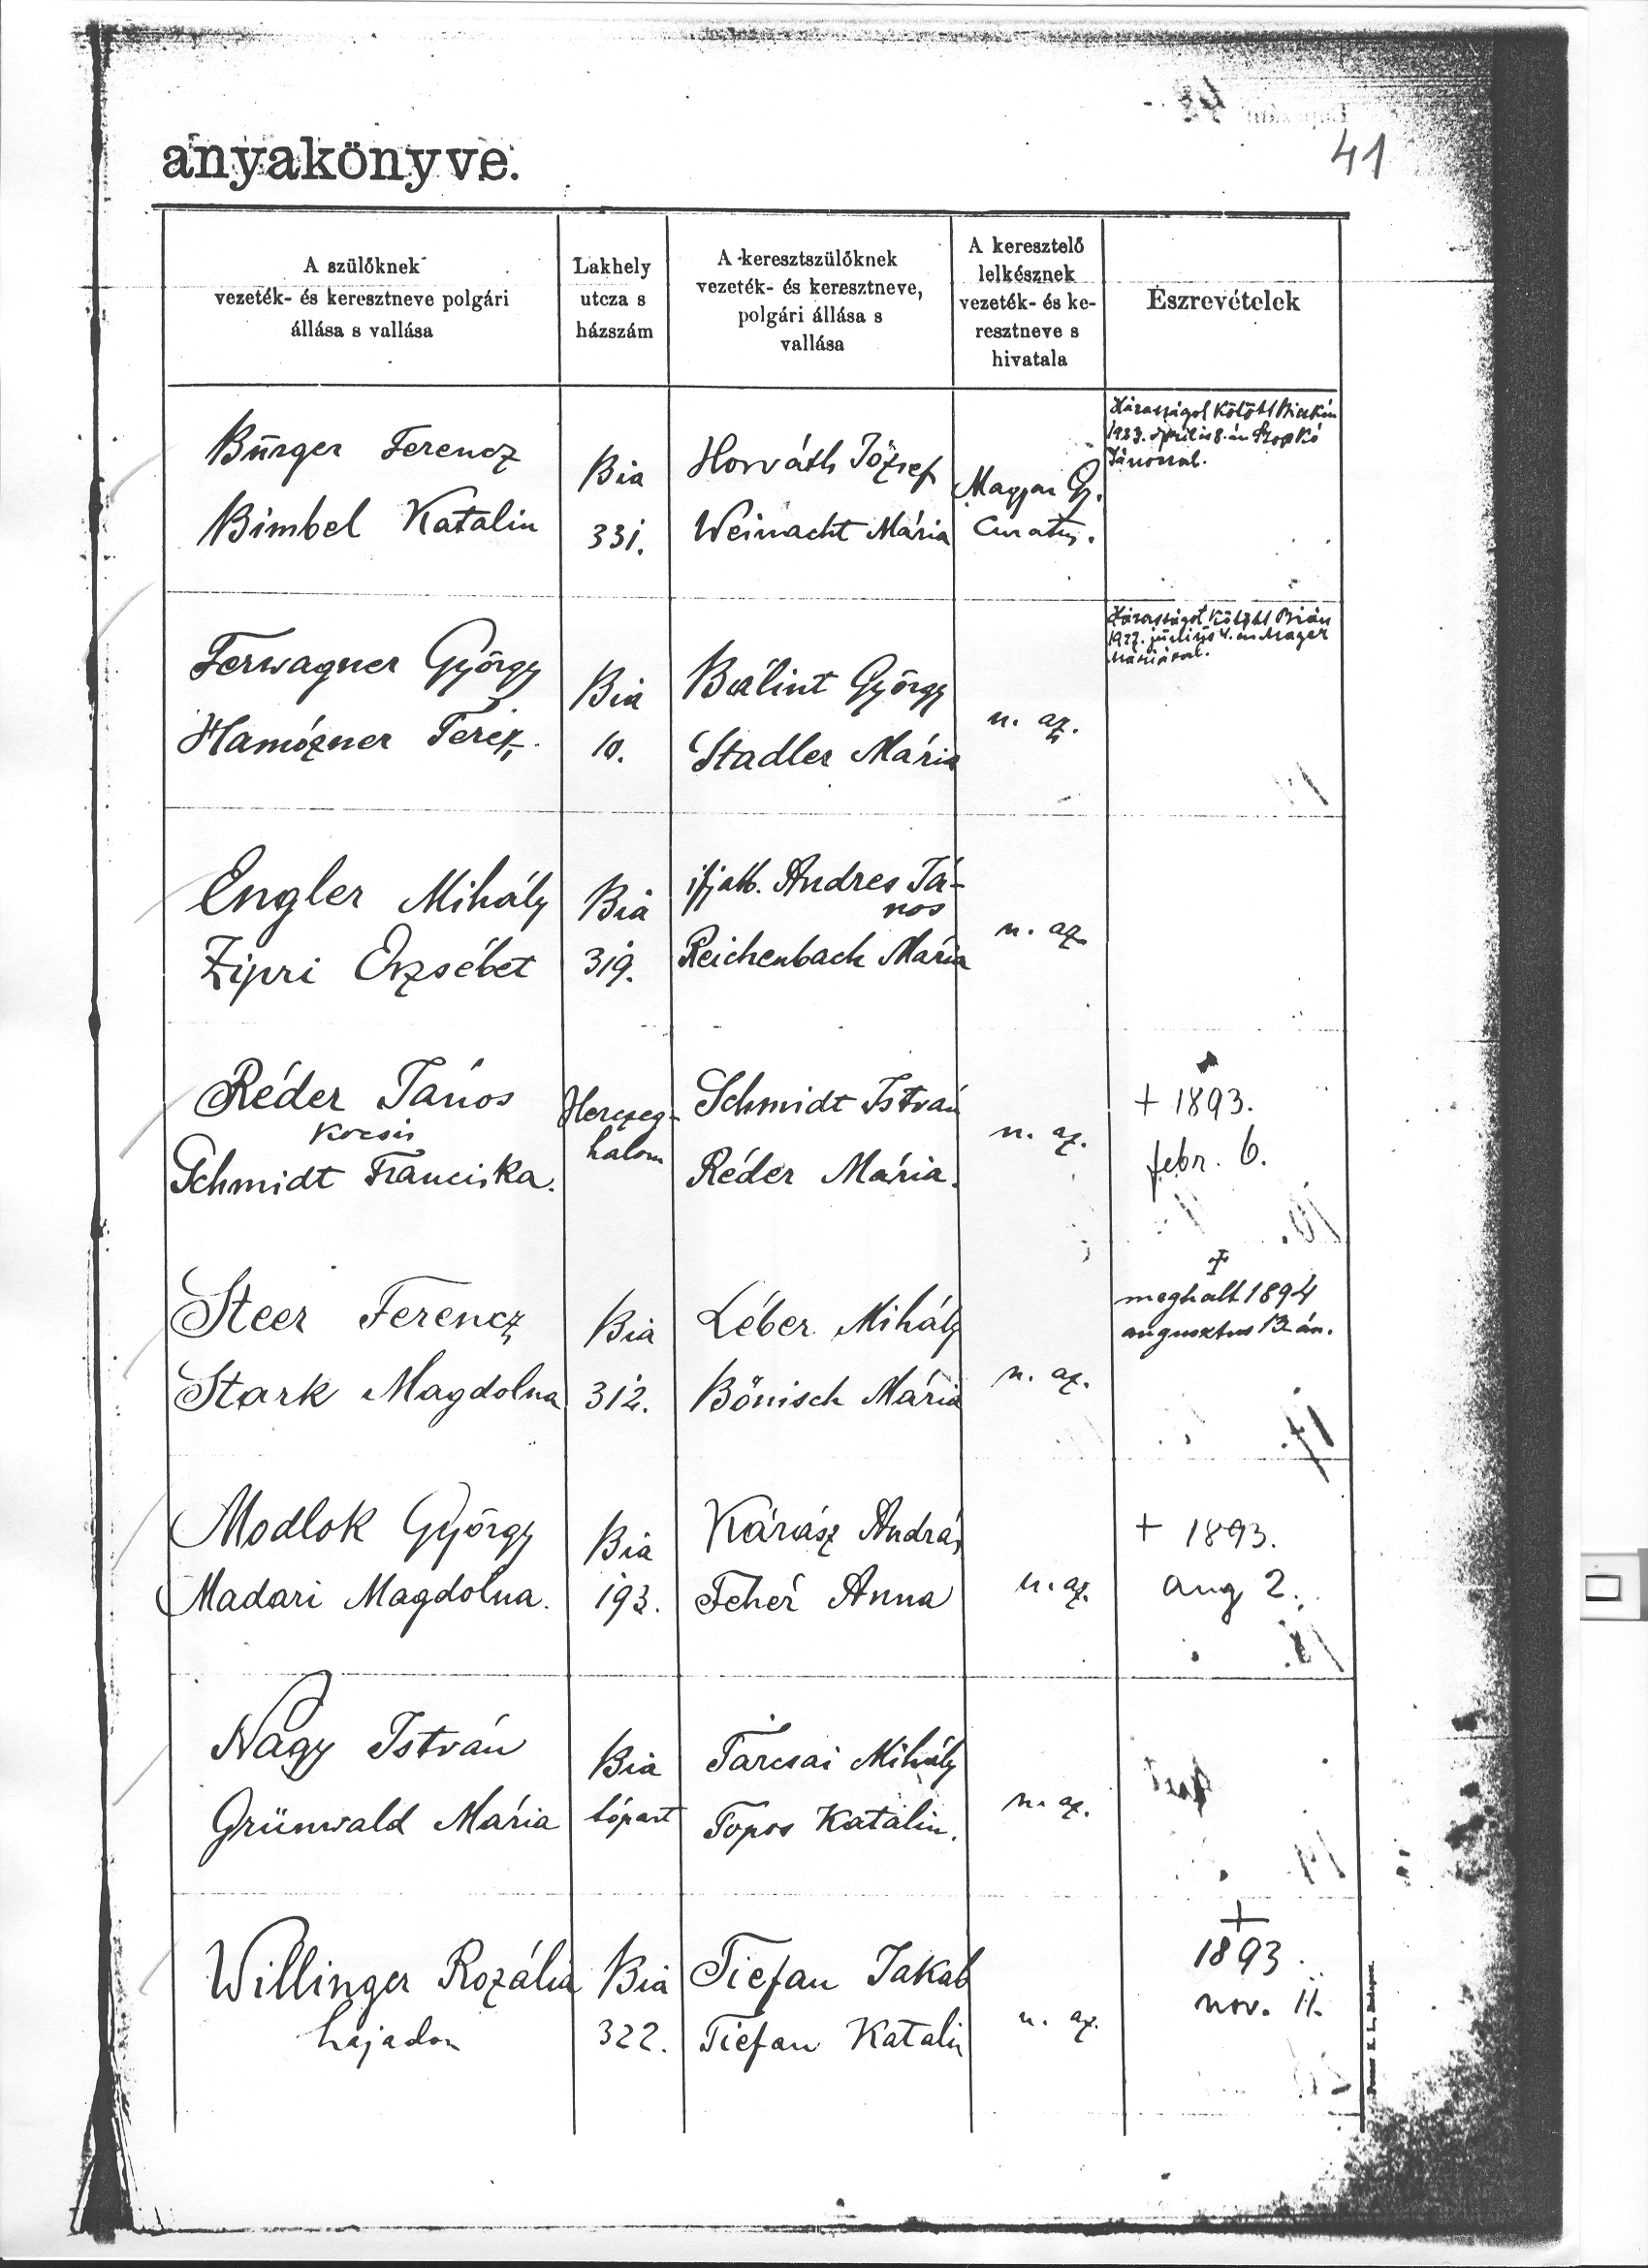 41
anyakönyve.
A szülőknek
vezeték- és keresztneve polgári
állása s vallása
Lakhely
utcza s
házszám
A keresztszülőknek
vezeték- és keresztneve,
polgári állása s
vallása
A keresztelő
lelkésznek
vezeték- és ke-
resztneve s
hivatala
Észrevételek
Bürger Ferencz
Bimbel Katalin
Bia
331.
Horváth József
Weinacht Mária
Magyar Gy.
Curatus.
Házasságot kötött
1923. április 8.-án Szopkó
Jánossal.
Ferwagner György
Hamózner Teréz.
Bia
10.
Bálint György
Stadler Mária
u. az.
Házasságot kötött Bián
július 4.-én Mager
Máriával.
Engler Mihály
Zipri Erzsébet
Bia
319.
ifjabb. Andres Já-
nos
Reichenbach Mária
u. az.
Réder János
kocsis
Schmidt Franciska.
Herczeg-
halom
Schmidt István
Réder Mária.
u. az.
+ 1893.
febr. 6.
Steer Ferencz
Stark Magdolna
Bia
312.
Léber Mihály
Bönisch Mária
u. az.
+
meghalt 1894
augusztus 13-án.
Modlok György
Madari Magdolna.
Bia
193.
Kárász András
Fehér Anna
u. az.
+ 1893.
aug 2.
Nagy István
Grünwald Mária
Bia
tópart
Tarcsai Mihály
Topos Katalin.
u. az.
Willinger Rozália
hajadon
Bia
322.
Tiefan Jakab
Tiefan Katalin
u. az.
+
1893.
nov. 11.